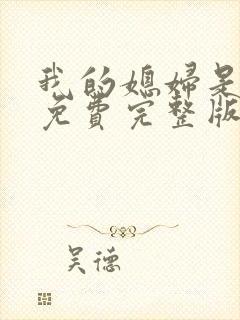 我的媳妇是
免费完整版
吴德